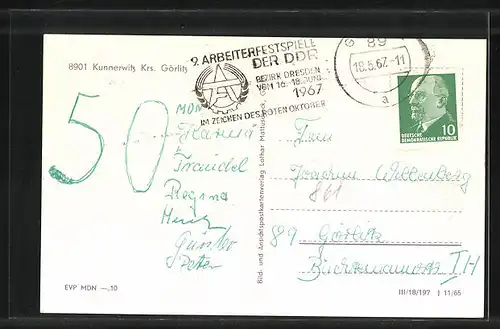 8901 Kunnerwitz Krs. Görlitz
9. ARBEITERFESTSPIELE
DER DDR
BEZIRK DRESDEN
VOM 16.-18. JUNI
1967
IM ZEICHEN DES ROTEN OKTOBER
89
18.5.67.-11
a
DEUTSCHE
DEMOKRATISCHE REPUBLIK
10
50
MDN
Traudel
Regina
Günter
Peter
EVP MDN —,10
Bild- und Ansichtspostkartenverlag Lothar
Joachim Willenberg
861
89 Görlitz
III/18/197 J 11/65